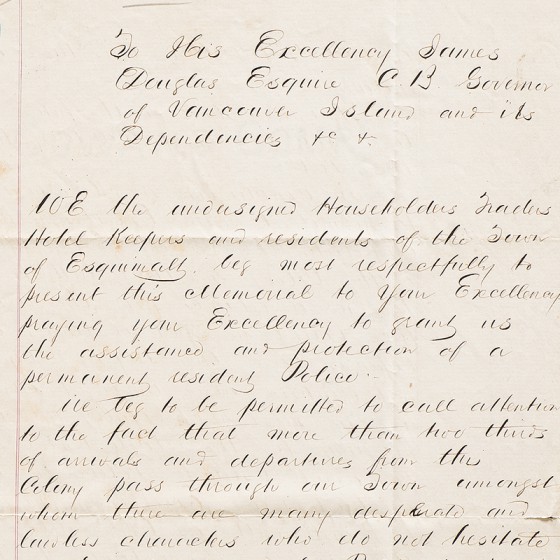 To His Excellency James
Douglas Esquire C.B. Governor
of Vancouver Island and its
Dependencies &c &.
WE the undersigned Householders Traders
Hotel Keepers and residents of the Town
of Esquimalt, beg most respectfully to
present this Memorial to Your Excellency
praying your Excellency to grant us
the assistance and protection of a
permanent resident Police.-
We beg to be permitted to call attention
to the fact that more than two thirds
of arrivals and departures from this
Colony pass through our Town amongst
whom there are many desperate and
lawless characters who do not hesitate